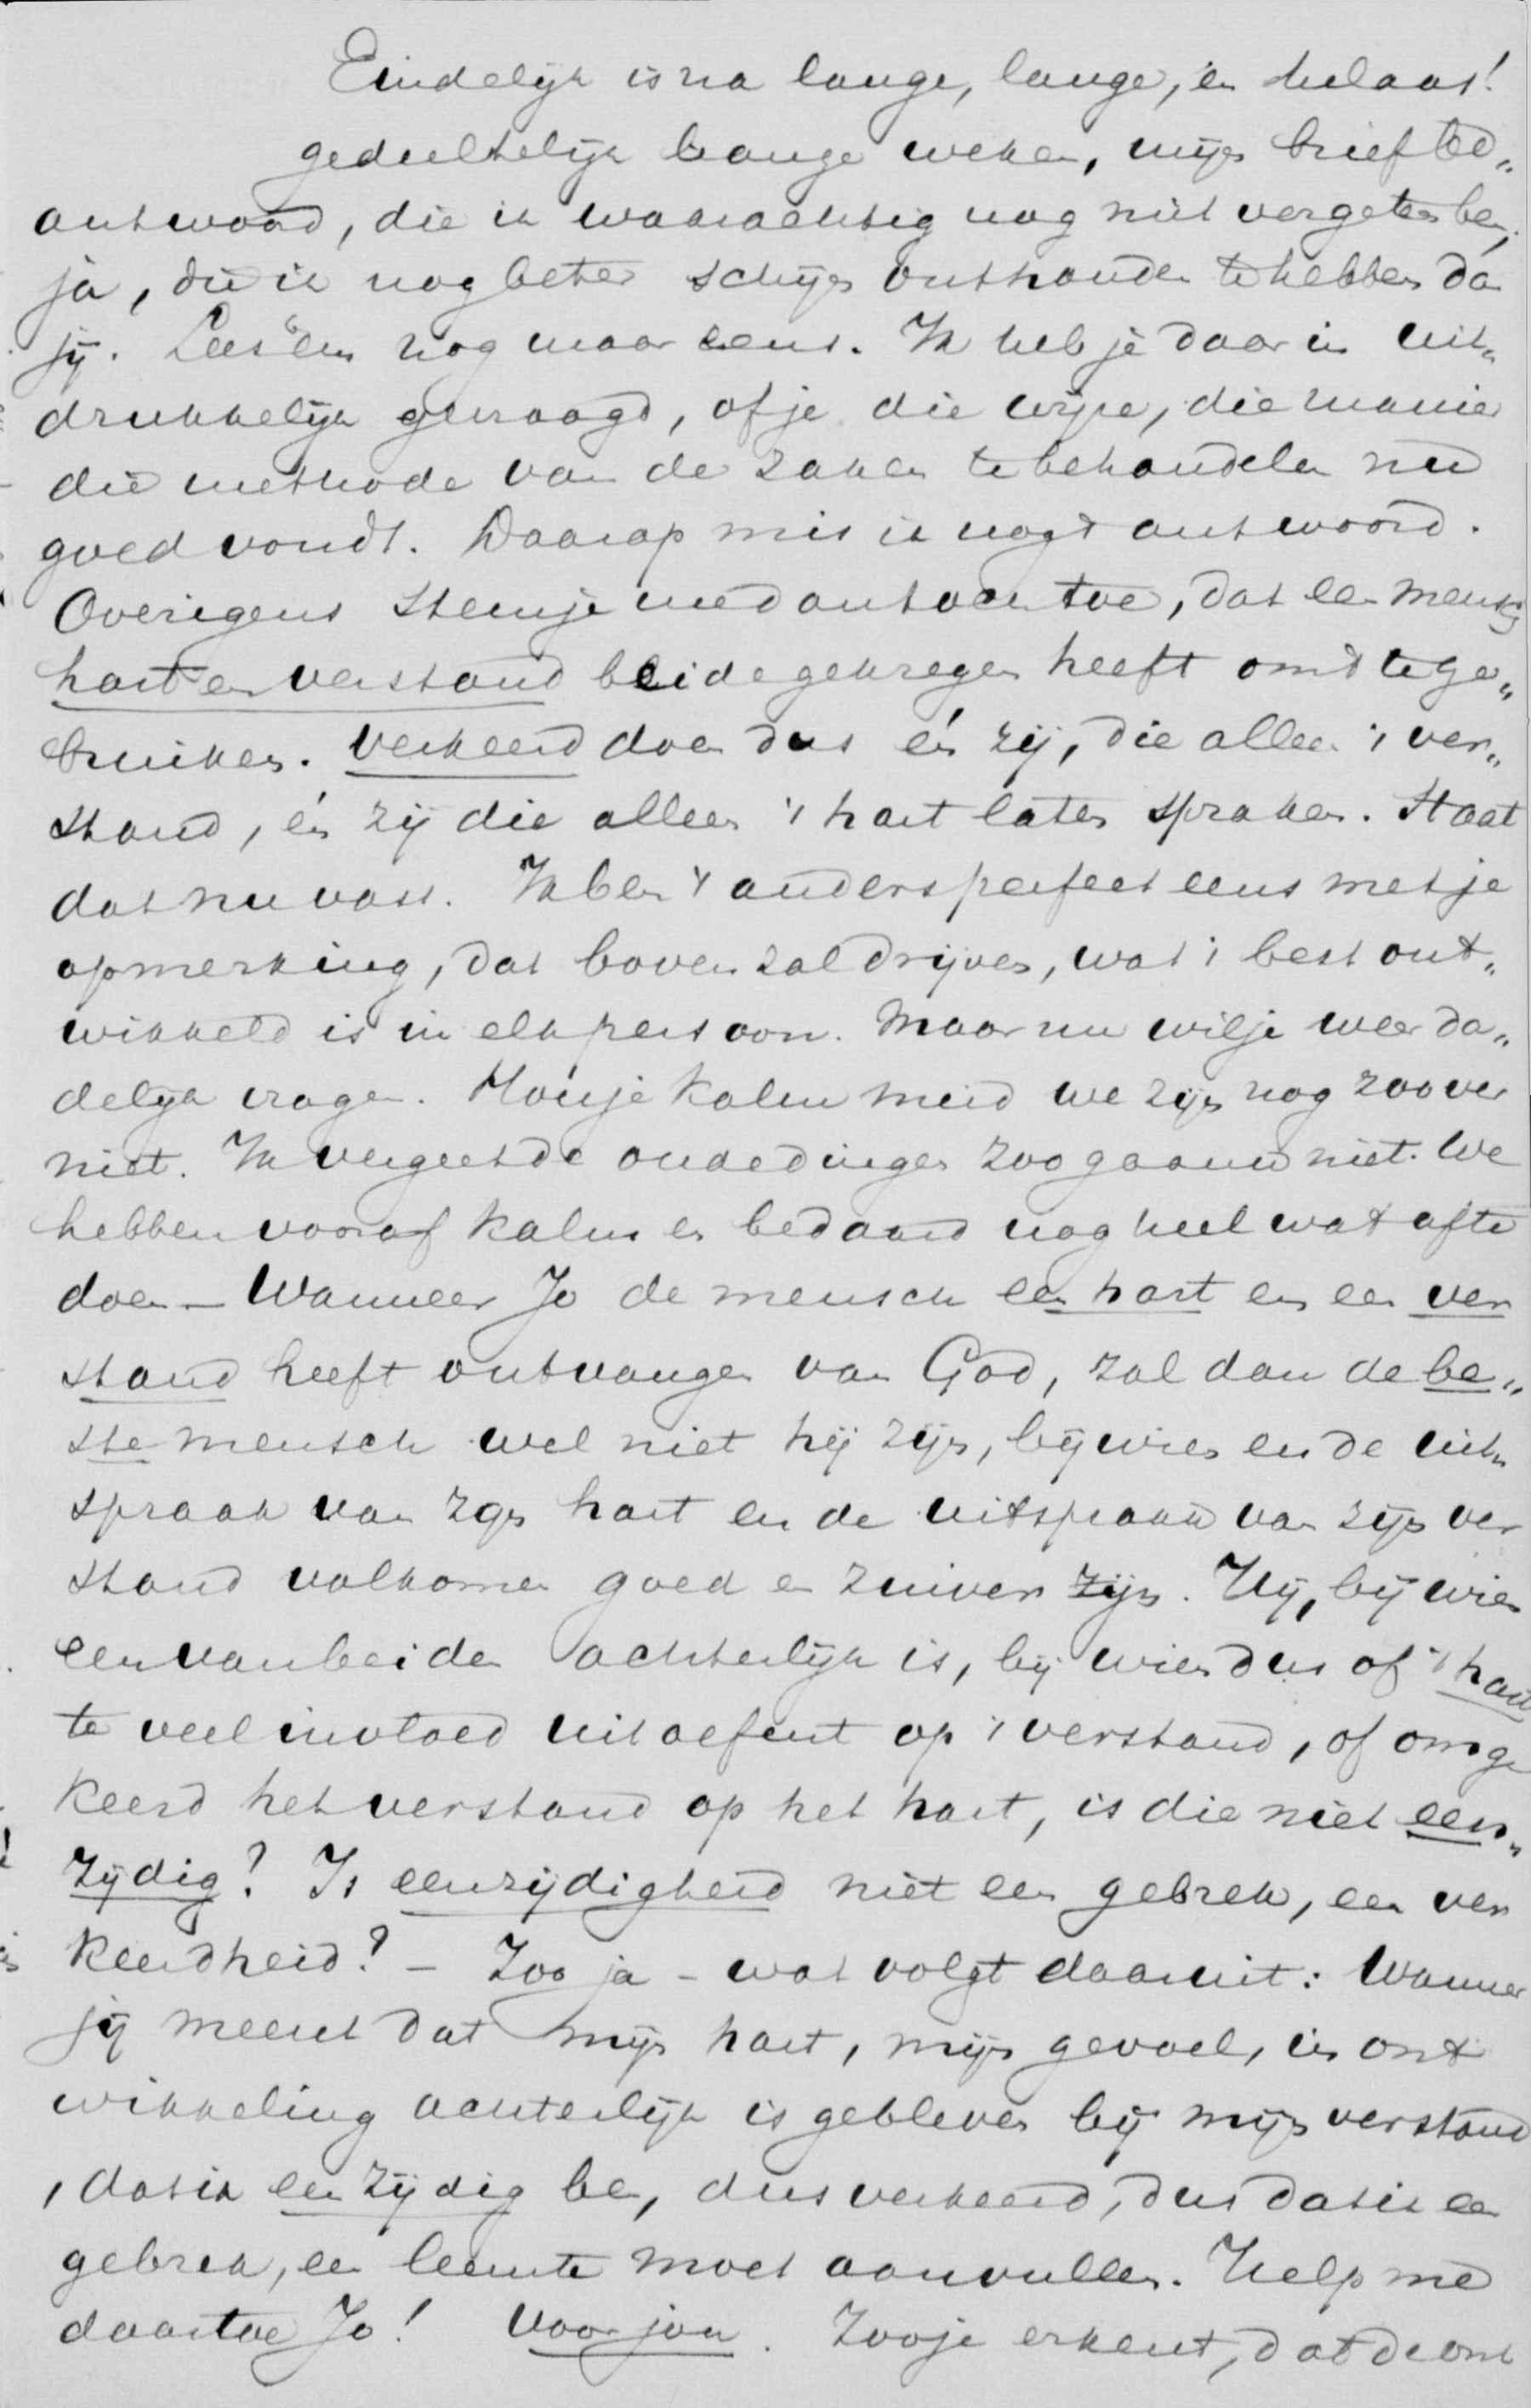 Eindelijk is na lange, lange, en helaas!
gedeeltelijk bange weken, mijn brief be„
antwoord, die ik waarachtig nog niet vergeten ben,
ja, die ik nog beter schijn onthouden te hebben dan
jij. Lees 'em nog maar eens. Ik heb je daar in uit„
drukkelijk gevraagd, of je die wijze, die manier
die methode van de zaken te behandelen nu
goed vondt. Daarop mis ik nog 't antwoord.
Overigens stem je me d'antwoord toe, dat een mensch
hart en verstand beide gekregen heeft om 't te ge„
bruiken. Verkeerd doen dus én zij, die alleen 't ver„
stand, én zij die alleen 't hart laten spreken. Staat
dat nu vast. Ik ben 't anders perfect eens met je
opmerking, dat boven zal drijven, wat 't best ont„
wikkeld is in elk persoon. Maar nu wil je weer da„
delijk vragen. Hou je kalm meid we zijn nog zoo ver
niet. Ik vergeet de oude dingen zoo gaauw niet. We
hebben vooraf kalm en bedaard nog heel wat af te
doen – Wanneer Jo de mensch een hart en een ver
stand heeft ontvangen van God, zal dan de be„
ste mensch wel niet hij zijn, bij wien en de uit„
spraak van zijn hart en de uitspraak van zijn ver
stand volkomen goed en zuiver zijn. Hij, bij wien
een van beiden achterlijk is, bij wien dus of 't hart
te veel invloed uitoefent op 't verstand, of omge
keerd het verstand op het hart, is die niet een„
zijdig? Is eenzijdigheid niet een gebrek, een ver
keerdheid? – Zoo ja – wat volgt daaruit: Wanneer
jij meent dat mijn hart, mijn gevoel, in ont
wikkeling achterlijk is gebleven bij mijn verstand
, dat ik eenzijdig ben, dus verkeerd, dus dat ik een
gebrek, een leemte moet aanvullen. Help me
daartoe Jo! Voor jou. Zoo je erkent, dat de ont